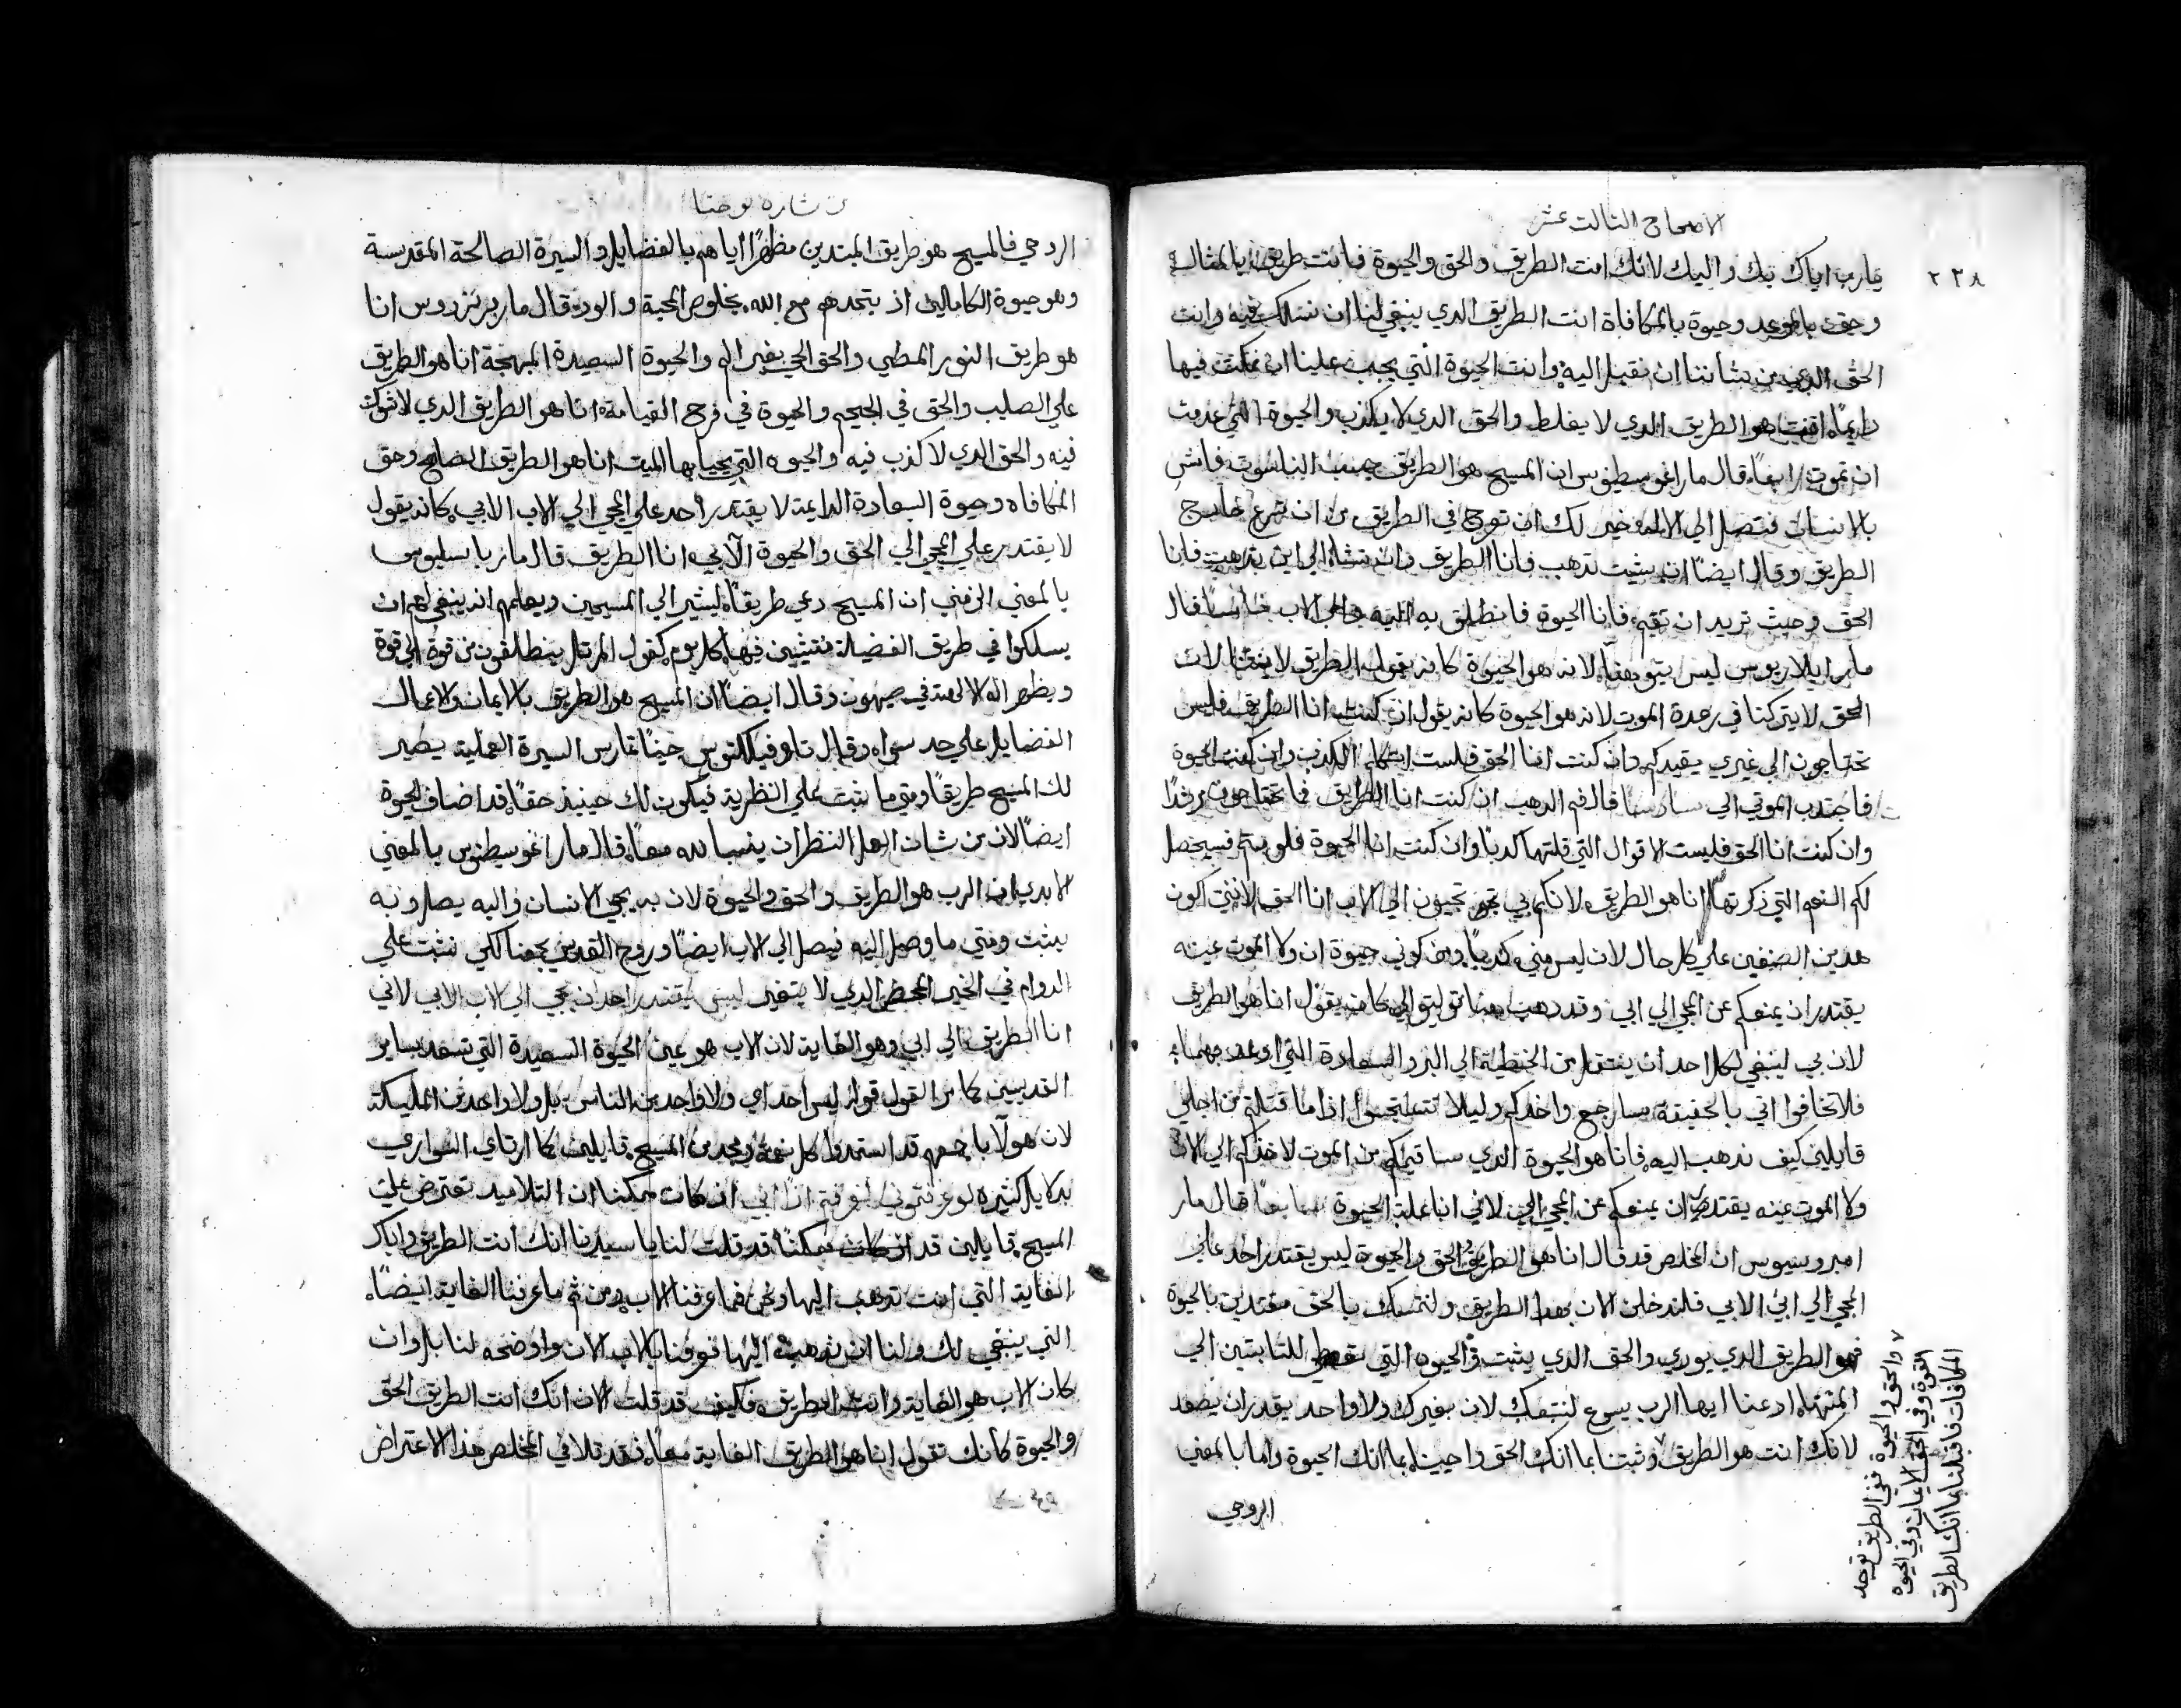 الاصحاح التالت عشر
٢٢٨
يارب اياك بك واليك لانك انت الطريق والحق والحيوة فانت طريق بالمثال
وحق بالموعد وحيوة بالمكافاة انت الطريق الدي ينبغي لنا ان نسلك فيه وانت
الحق الدي من شاننا ان نقبل اليه وانت الحيوة التي يجب علينا ان نمكت فيها
دايماً انت هو الطريق الدي لا يغلط والحق الدي لا يكدب والحيوة التي عدمت
ان تموت رابعاً قال مار اغوسطينوس ان المسيح هو الطريق حسب الناسوت فامش
بالانسان فتصل الي الاله خير لك ان توج في الطريق من ان تسرع خارج
الطريق وقال ايضاً ان شيت تدهب فانا الطريق وان تشا الي اين تدهب فانا
الحق وحيت تريد ان تقيم فانا الحيوة فانطلق به اليه والي الاب خامساً قال
مار ايلاريوس ليس يتوهنا لانه هو الحيوة كانه يقول الطريق لا يغشنا لان
الحق لا يتركنا في رعدة الموت لانه هو الحيوة كانه يقول ان كنت انا الطريق فليس
تحتاجون الي غيري يقيدكم وان كنت انا الحق فلست اتكلم الكدب وان كنت الحيوة
فاجتدب الموتي الي سادساً قال فم الدهب ان كنت انا الطريق فما تحتاجون مرشداً
وان كنت انا الحق فليست الاقوال التي قلتها كدباً وان كنت انا الحيوة فلو متم فسيحصل
لكم النعم التي ذكرتها انا هو الطريق لانكم بي تجيون الي الاب انا الحق لانني اكون
هدين الصنفين علي كل حال لان ليس مني كدباً ومن كوني حيوة ان ولا الموت عينه
يقتدر ان يمنعكم عن المجي الي ابي وقد دهب هنا توليتو الي كانه يقول انا هو الطريق
لان بي ينبغي لكل احد ان ينتقل من الخطية الي البر والسعادة التي اوعد بهما
فلا تخافوا اني بالحقيقة سارجع واخدكم وليلا تتعجبوا اذا ما قتلتم من اجلي
قايلين كيف ندهب اليه فانا هو الحيوة الدي ساقيمكم من الموت لاخدكم الي الاب
ولا الموت عينه يقتدر ان يمنعكم عن المجي الي لاني انا علة الحيوة سابعاً قال مار
امبروسيوس ان المخلص قد قال انا هو الطريق والحق والحيوة ليس يقتدر احد علي
المجي الي ابي الا بي فلندخلن الان بهدا الطريق ولنتمسك بالحق مقتدين بالحيوة
فهو الطريق الدي يوري والحق الدي يثبت والحيوه التي تعطي للثابتين الي
المنتها ادعنا ايها الرب يسوع لنتبعك لان بغيرك ولا واحد يقدر ان يصعد
لانك انت هو الطريق وثبتنا بما انك الحق واحيينا بما انك الحيوة واما بالمعني
الروحي
والحق والحيوة ففي الطريق توجد
القوة وفي الحق الايمان وفي الحيوه
المكافات فاقبلنا بما انك الطريق
من بشارة يوحنا
الروحي فالمسيح هو طريق المبتدين مظهراً اياهم بالفضايل والسيرة الصالحة المقدسة
وهو حيوة الكاملين اذ يتحدهم مع الله بخلوص المحبة والود وقال مار برنردوس انا
هو طريق النور المضي والحق الحي بغير الم والحيوة السعيدة المبهجة انا هو الطريق
علي الصليب والحق في الجحيم والحيوة في فرح القيامة انا هو الطريق الدي لا شوك
فيه والحق الدي لا كذب فيه والحيوه التي يحيا بها الميت انا هو الطريق الصالح وحق
المكافاه وحيوة السعادة الدايمة لا يقتدر احد علي المجي الي الاب الا بي كانه يقول
لا يقتدر علي المجي الي الحق والحيوة الا بي انا الطريق قال مار باسليوس
بالمعني الزمني ان المسيح دعي طريقاً ليشير الي المسيحيين ويعلمهم انه ينبغي لهم ان
يسلكوا في طريق الفضيلة منتبين فيها كل يوم كقول المرتل ينطلقون من قوة الي قوة
ويظهر اله الالهة في صهيون وقال ايضاً ان المسيح هو الطريق بالايمان والاعمال
الفضايل علي حد سواء وقال تاوفيلكتوس حيناً تمارس السيرة العملية يصير
لك المسيح طريقاً ومتي ما تبت علي النظرية فيكون لك حينيذ حقاً قد اضاف الحيوة
ايضاً لان من شان العمل النظر ان ينسبا له معاً قال مار اغوسطينوس بالمعني
الابدي ان الرب هو الطريق والحق والحيوة لان به يجي الانسان واليه يصل وبه
يثبت ومتي ما وصل اليه فيصل الي الاب ايضاً وروح القدس يجمعنا لكي نثبت علي
الدوام في الخير المحض الدي لا يتغير ليس يقتدر احد ان يجي الي الاب الا بي لاني
انا الطريق الي ابي وهو الغاية لان الاب هو عين الحيوة السعيدة التي تسعد ساير
القديسين كما مر القول قوله ليس احد اي ولا واحد من الناس بل ولا واحد من المليكة
لان هولا باجمعهم قد استمدوا كل نعمة ومجد من المسيح قايلين كما ارتاي السواري
بدلايل كثيره لو عرفتموني لعرفتم ابي ان كان ممكناً ان التلاميد تعترض علي
المسيح قايلين قد ان كان ممكناً قد قلت لنا يا سيدنا انك انت الطريق واباك
الغاية التي انت تدهب اليها ونحن فما عرفنا الاب ومن ثم ما عرفنا الغاية ايضاً
التي ينبغي لك ولنا ان ندهب اليها فعرفنا بالاب الان واوضحه لنا بل وان
كان الاب هو الغاية وانت الطريق فكيف قد قلت الان انك انت الطريق الحق
والحيوة كانك تقول انا هو الطريق الغاية معاً فقد تلافي المخلص هذا الاعتراض